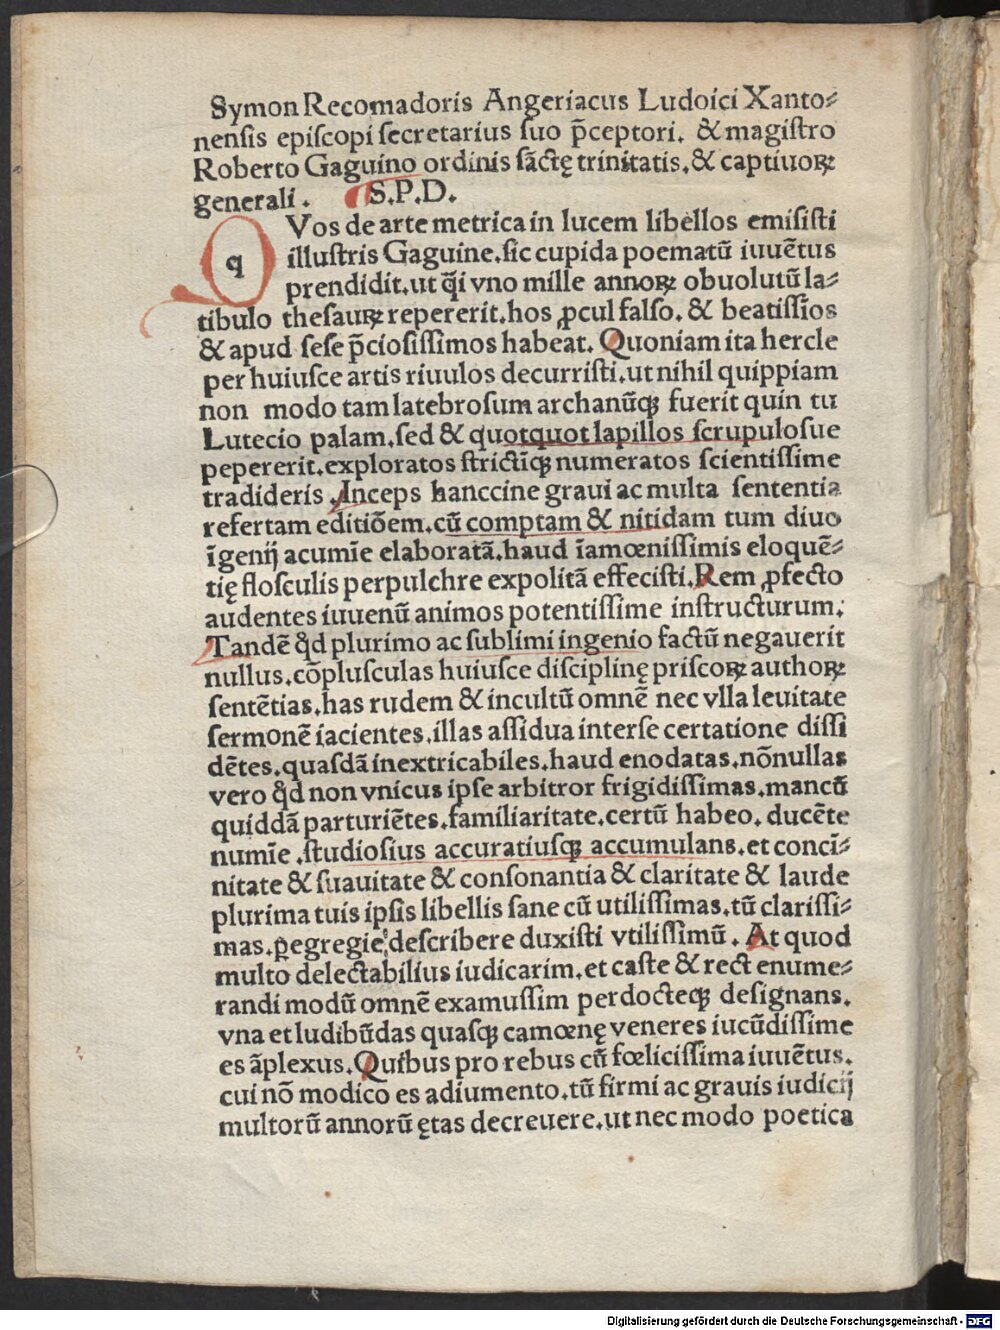 Symon Recomadoris Angeriacus Ludoici Xanto⸗
nensis episcopi secretarius suo p̄ceptori. & magistro
Roberto Gaguino ordinis sāctę trinitatis. & captiuoꝝ
generali. S.P.D.
q
QVos de arte metrica in lucem libellos emisisti
illustris Gaguine. sic cupida poematū iuuētus
prendidit. ut q̄i vno mille annoꝝ obuolutū la⸗
tibulo thesauꝝ repererit. hos ꝓcul falso. & beatissīos
& apud sese p̄ciosissimos habeat. Quoniam ita hercle
per huiusce artis riuulos decurristi. ut nihil quippiam
non modo tam latebrosum archanūqꝫ fuerit quin tu
Lutecio palam. sed & quotquot lapillos scrupulosue
pepererit. exploratos strictīqꝫ numeratos scientissime
tradideris. Inceps hanccine graui ac multa sententia
refertam editiōem. cū comptam & nitidam tum diuo
īgenij acumīe elaboratā. haud īamœnissimis eloquē⸗
tię flosculis perpulchre expolitā effecisti. Rem ꝓfecto
audentes iuuenū animos potentissime instructurum.
Tandē qd̄ plurimo ac sublimi ingenio factū negauerit
nullus. cōplusculas huiusce disciplinę priscoꝝ authoꝝ
sentētias. has rudem & incultū omnē nec vlla leuitate
sermonē iacientes. illas assidua interse certatione dissi
dētes. quasdā inextricabiles. haud enodatas. nōnullas
vero qd̄ non vnicus ipse arbitror frigidissimas. mancū
quiddā parturiētes. familiaritate. certū habeo. ducēte
numīe. studiosius accuratiusqꝫ accumulans. et concī⸗
nitate & suauitate & consonantia & claritate & laude
plurima tuis ipsis libellis sane cū utilissimas. tū clarissi⸗
mas. p̱egregie describere duxisti vtilissimū. At quod
multo delectabilius iudicarim. et caste & rect enume⸗
randi modū omnē examussim perdocteqꝫ designans.
vna et ludibūdas quasqꝫ camœnę veneres iucūdissime
es āplexus. Quibus pro rebus cū fœlicissima iuuētus.
cui nō modico es adiumento. tū firmi ac grauis iudicij
multorū annorū ętas decreuere. ut nec modo poetica
Digitalisierung gefördert durch die Deutsche Forschungsgemeinschaft - DFG